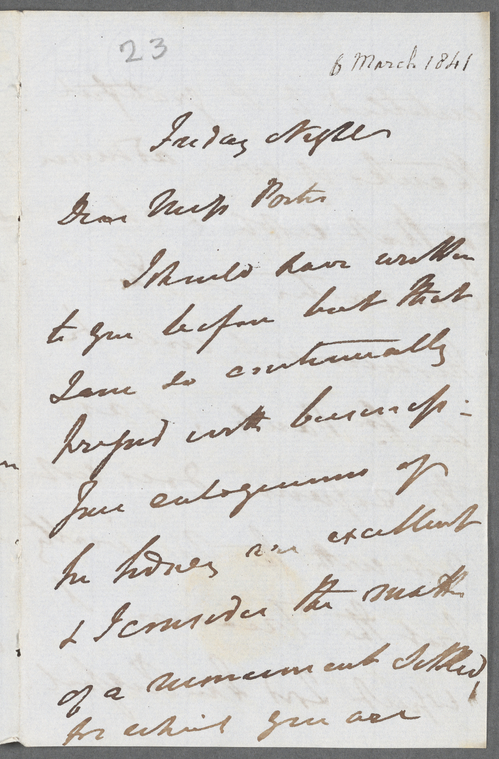 23
6 March 1841
Friday Night
Dear Miss Porter
I should have written
to you before but that
I am so continually
pressed with business:
Your eulogiums of
Sir Sidney are excellent
& I consider the matter
of a monument settled,
for which you are